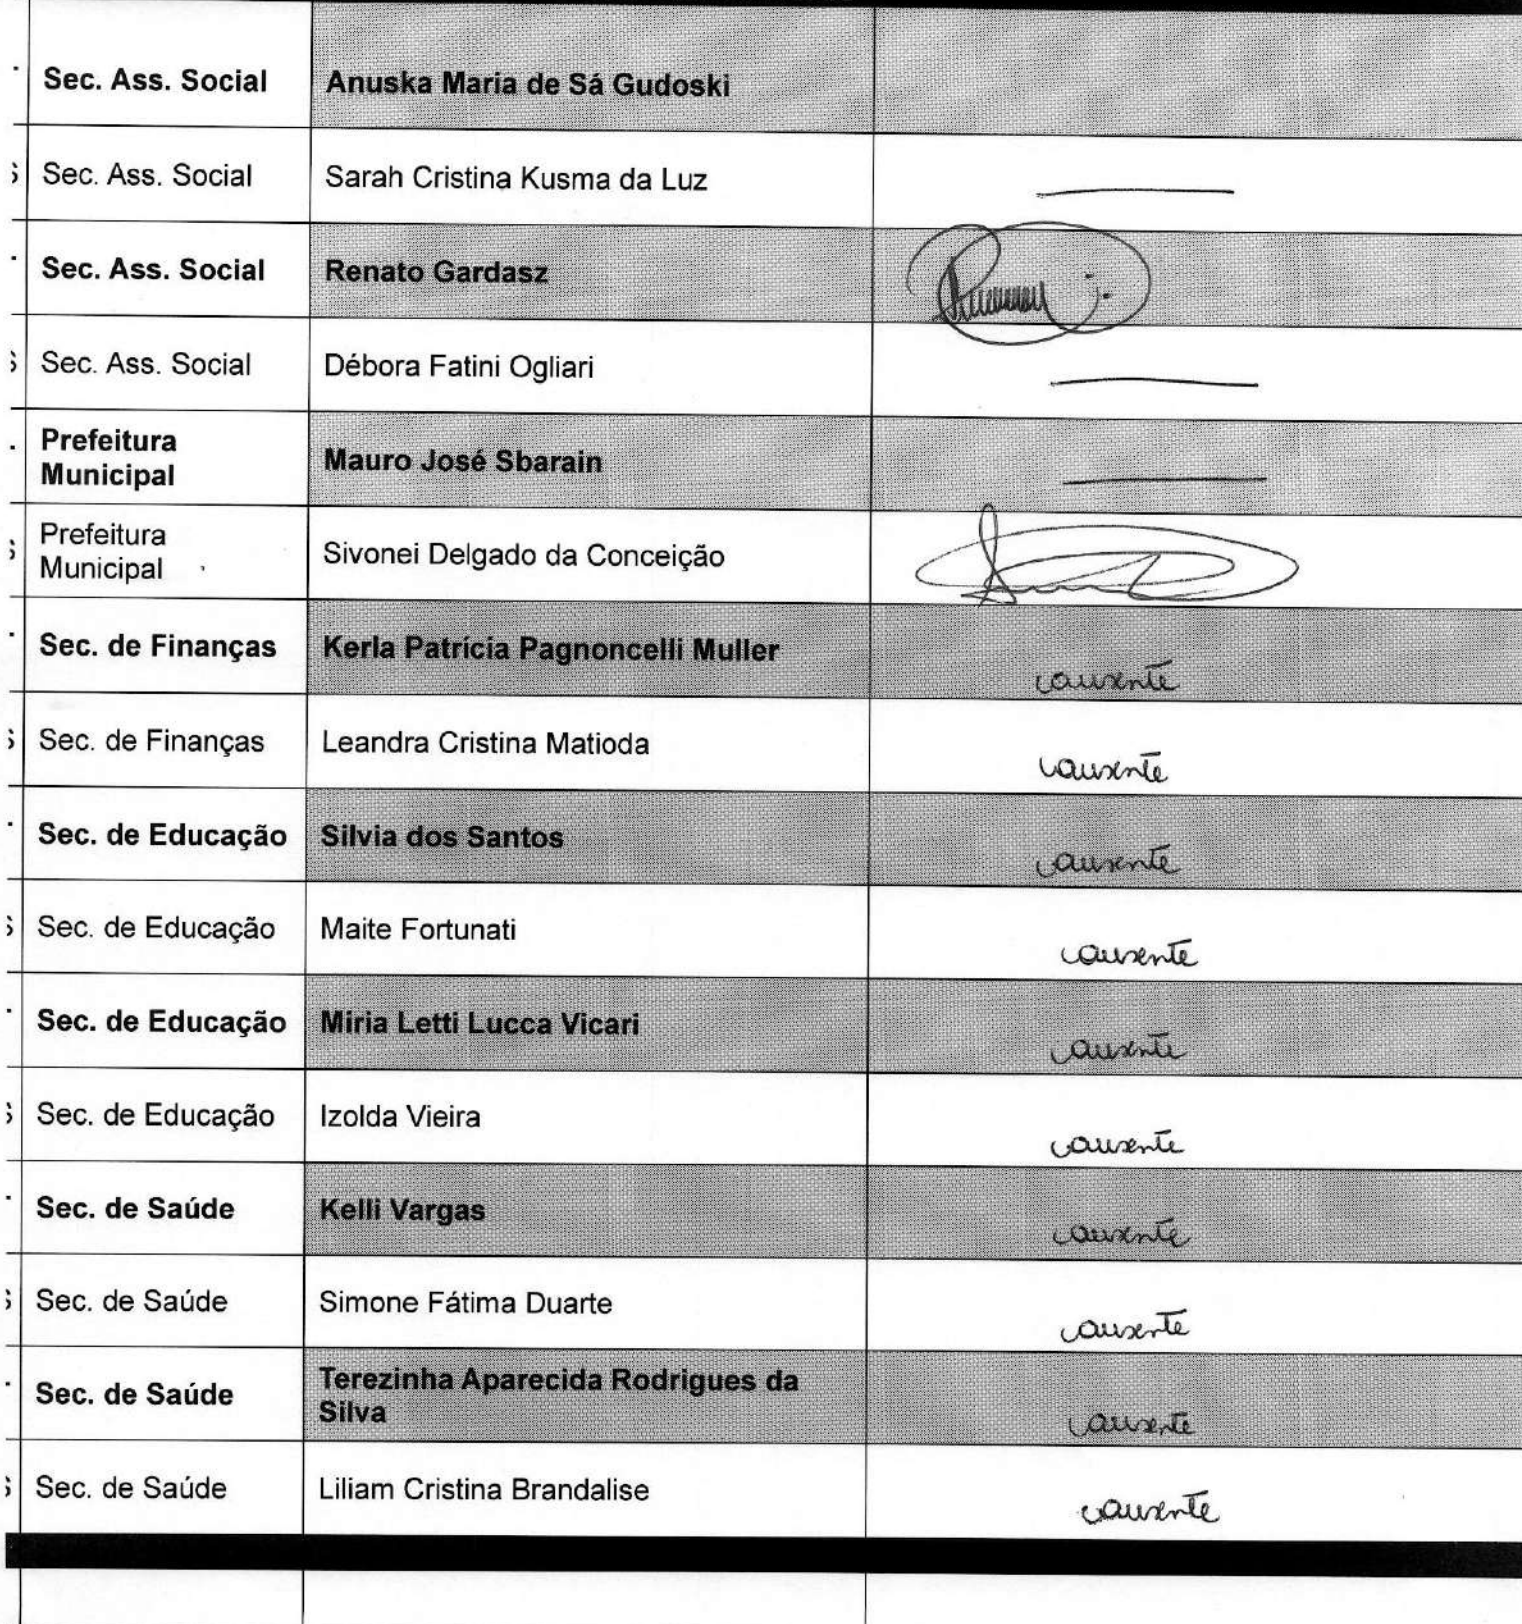 Sec. Ass. Social Anuska Maria de Sá Gudoski
S Sec. Ass. Social Sarah Cristina Kusma da Luz
Sec. Ass. Social Renato Gardasz
S Sec. Ass. Social Débora Fatini Ogliari
Prefeitura
Municipal Mauro José Sbarain
S Prefeitura
Municipal Sivonei Delgado da Conceição
Sec. de Finanças Kerla Patrícia Pagnoncelli Muller ausente
S Sec. de Finanças Leandra Cristina Matioda ausente
Sec. de Educação Silvia dos Santos ausente
S Sec. de Educação Maite Fortunati ausente
Sec. de Educação Miria Letti Lucca Vicari ausente
S Sec. de Educação Izolda Vieira ausente
Sec. de Saúde Kelli Vargas ausente
S Sec. de Saúde Simone Fátima Duarte ausente
Sec. de Saúde Terezinha Aparecida Rodrigues da
Silva ausente
S Sec. de Saúde Liliam Cristina Brandalise ausente